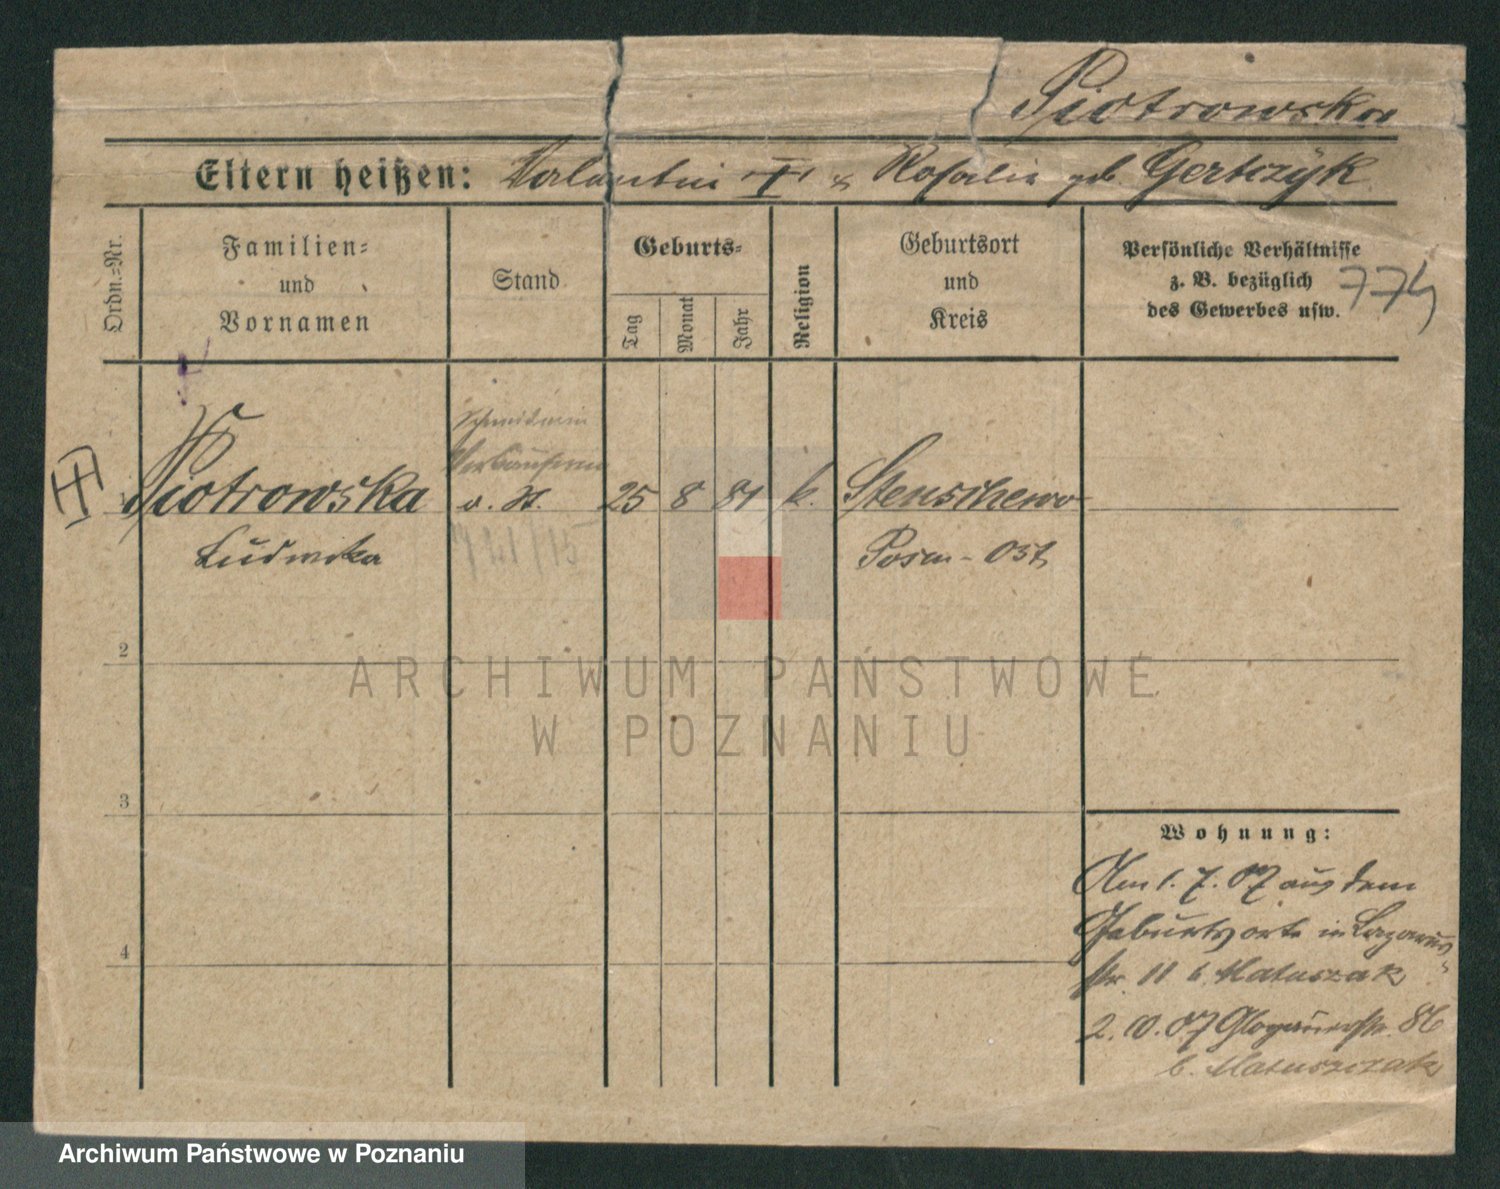 Piotrowska
Eltern heißen: Valentin † & Rosalie geb. Gertczyk
Ordn.=Nr.
Familien=
und
Vornamen
Stand
Geburts=
Tag
Monat
Jahr
Religion
Geburtsort
und
Kreis
Persönliche Verhältnisse
z. B. bezüglich
des Gewerbes usw.
774
Schneiderin
Verkäuferin
1 Piotrowska o. St. 25 8 81 k. Stenschewo
Ludwika Posen-Ost
2
3
4
Wohnung:
Am 1. 7. 07 aus dem
Geburtsorte in Lazarus-
str. 11 b. Matuszak
2. 10. 07 Glogauerstr. 86
b. Matuszczak
ARCHIWUM PAŃSTWOWE
W POZNANIU
Archiwum Państwowe w Poznaniu